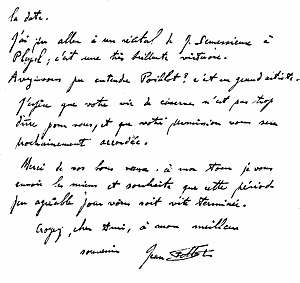 la date.
J'ai pu aller à un récital de J. Demessieux à
Pleyel, c'est une très brillante virtuose.
Avez-vous pu entendre ? c'est un grand artiste.
J'espère que votre vie de caserne n'est pas trop
dure pour vous, et que votre permission vous sera
prochainement accordée.
Merci de vos bons vœux. à mon tour je vous
envoie les miens et souhaite que cette période
peu agréable pour vous soit vite terminée.
Croyez, cher Ami, à mon meilleur
souvenir Jean